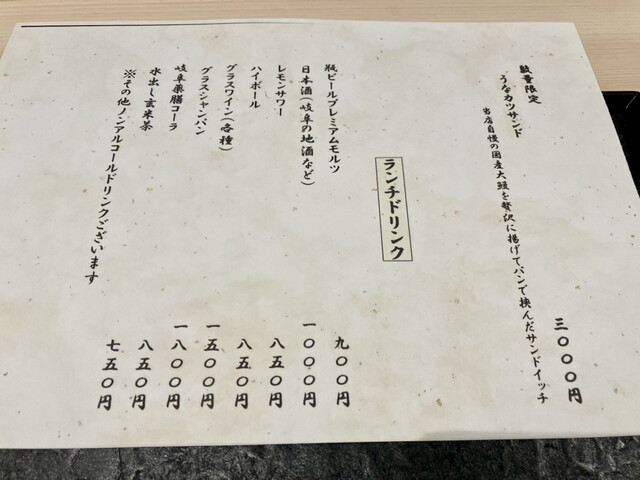 数量限定
うなカツサンド
当店自慢の国産大鰻を贅沢に揚げてパンで挟んだサンドイッチ
三〇〇〇円
ランチドリンク
瓶ビールプレミアムモルツ 九〇〇円
日本酒(岐阜の地酒など) 一〇〇〇円
レモンサワー 八五〇円
ハイボール 八五〇円
グラスワイン(各種) 一五〇〇円
グラスシャンパン 一八〇〇円
岐阜薬膳コーラ 八五〇円
水出し玄米茶 七五〇円
※その他ノンアルコールドリンクございます